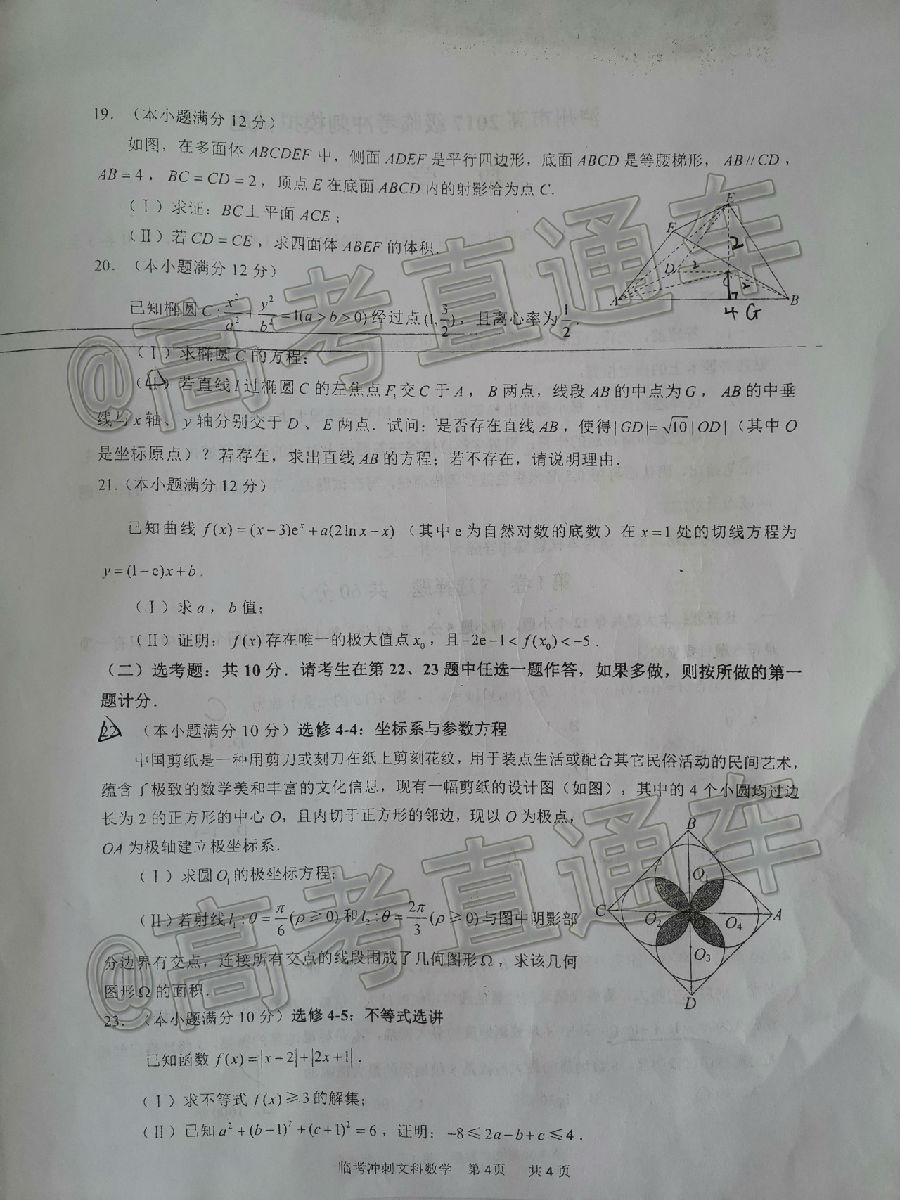 19. （本小题满分12分）
如图，在多面体 ABCDEF 中，侧面 ADEF 是平行四边形，底面 ABCD 是等腰梯形，AB∥CD，
AB=4，BC=CD=2，顶点 E 在底面 ABCD 内的射影恰为点 C.
（Ⅰ）求证：BC⊥平面 ACE；
（Ⅱ）若 CD=CE，求四面体 ABEF 的体积.
E
F
2
D
2
2
A
B
4 G
20. （本小题满分12分）
已知椭圆 C: x²/a² + y²/b² =1(a>b>0) 经过点(1, 3/2)，且离心率为 1/2.
（Ⅰ）求椭圆 C 的方程；
若直线 l 过椭圆 C 的左焦点 F₁ 交 C 于 A，B 两点，线段 AB 的中点为 G，AB 的中垂
线与 x 轴、y 轴分别交于 D、E 两点. 试问：是否存在直线 AB，使得|GD|=√10|OD|（其中 O
是坐标原点）？若存在，求出直线 AB 的方程；若不存在，请说明理由.
21.（本小题满分12分）
已知曲线 f(x)=(x−3)eˣ+a(2ln x−x)（其中 e 为自然对数的底数）在 x=1 处的切线方程为
y=(1−e)x+b.
（Ⅰ）求 a，b 值；
（Ⅱ）证明：f(x) 存在唯一的极大值点 x₀，且 −2e−1<f(x₀)<−5.
（二）选考题：共 10 分. 请考生在第 22、23 题中任选一题作答，如果多做，则按所做的第一
题计分.
22 （本小题满分10分）选修 4-4：坐标系与参数方程
中国剪纸是一种用剪刀或刻刀在纸上剪刻花纹，用于装点生活或配合其它民俗活动的民间艺术，
蕴含了极致的数学美和丰富的文化信息，现有一幅剪纸的设计图（如图），其中的 4 个小圆均过边
长为 2 的正方形的中心 O，且内切于正方形的邻边，现以 O 为极点，
OA 为极轴建立极坐标系.
（Ⅰ）求圆 O₁ 的极坐标方程；
（Ⅱ）若射线 l₁: θ=π/6(ρ≥0) 和 l₂: θ=2π/3(ρ≥0) 与图中阴影部
分边界有交点，连接所有交点的线段围成了几何图形 Ω，求该几何
图形 Ω 的面积.
B
O₁
C
O₂
O₄
A
O₃
D
23. （本小题满分10分）选修 4-5：不等式选讲
已知函数 f(x)=|x−2|+|2x+1|.
（Ⅰ）求不等式 f(x)≥3 的解集；
（Ⅱ）已知 a²+(b−1)²+(c+1)²=6，证明：−8≤2a−b+c≤4.
临考冲刺文科数学 第4页 共4页
@高考直通车
@高考直通车